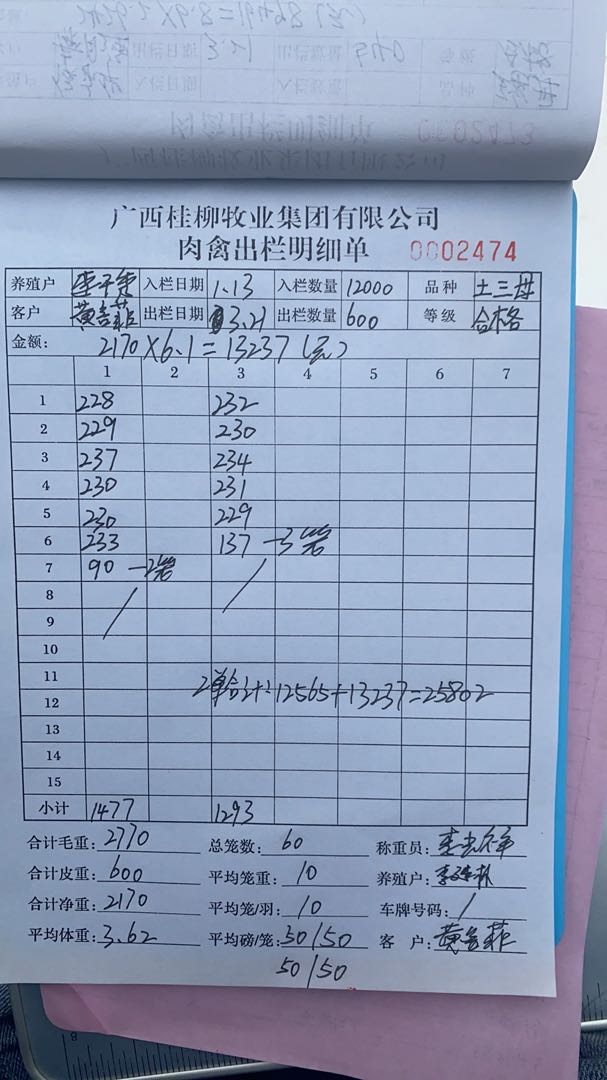 出栏日期 3.21 出栏数量 570
入栏日期 入栏数量 品种
肉禽出栏明细单 0002473
广西桂柳牧业集团有限公司
肉禽出栏明细单 0002474
养殖户 入栏日期 1.13 入栏数量 12000 品种 土三母
客户 出栏日期 3.21 出栏数量 600 等级 合格
金额: 2170×6.1=13237(元)
1 2 3 4 5 6 7
1 228 232
2 229 230
3 237 234
4 230 231
5 230 229
6 233 137 -3笼
7 90 -2笼
8
9
10
11
2单合计:12565+13237=25802
12
13
14
15
小计 1477 1293
合计毛重: 2770 总笼数: 60 称重员:
合计皮重: 600 平均笼重: 10 养殖户:
合计净重: 2170 平均笼/羽: 10 车牌号码: /
平均体重: 3.62 平均磅/笼: 50/50 客 户:
50/50